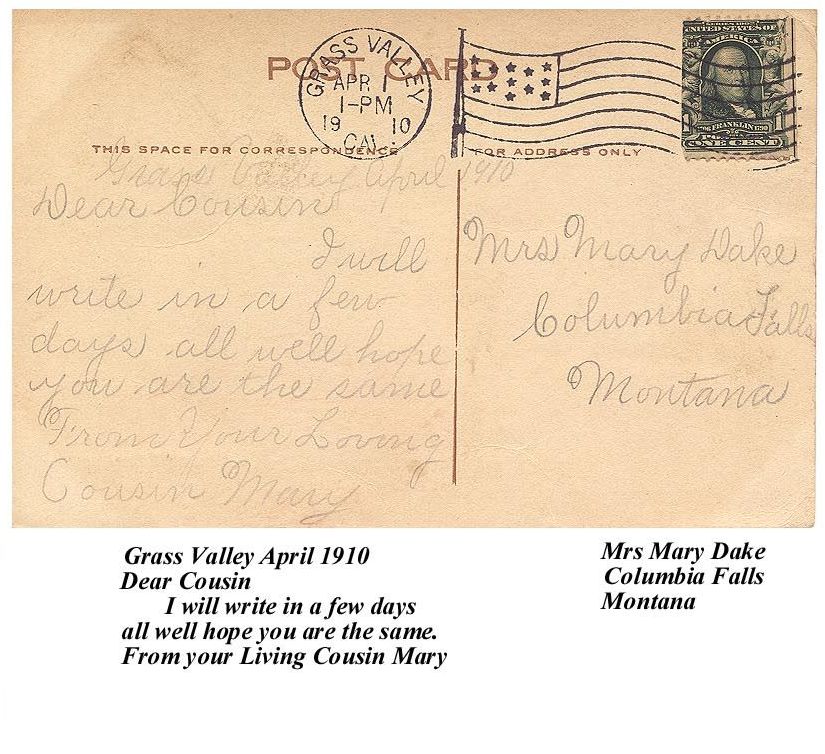 POST CARD
GRASS VALLEY
APR 1
1-PM
19 10
CAL.
SERIES 1902
UNITED STATES OF
AMERICA
FRANKLIN
ONE CENT
THIS SPACE FOR CORRESPONDENCE
FOR ADDRESS ONLY
Grass Valley April 1910
Dear Cousin
I will
write in a few
days all well hope
you are the same
From Your Loving
Cousin Mary
Mrs Mary Dake
Columbia Falls
Montana
Grass Valley April 1910
Dear Cousin
I will write in a few days
all well hope you are the same.
From your Living Cousin Mary
Mrs Mary Dake
Columbia Falls
Montana